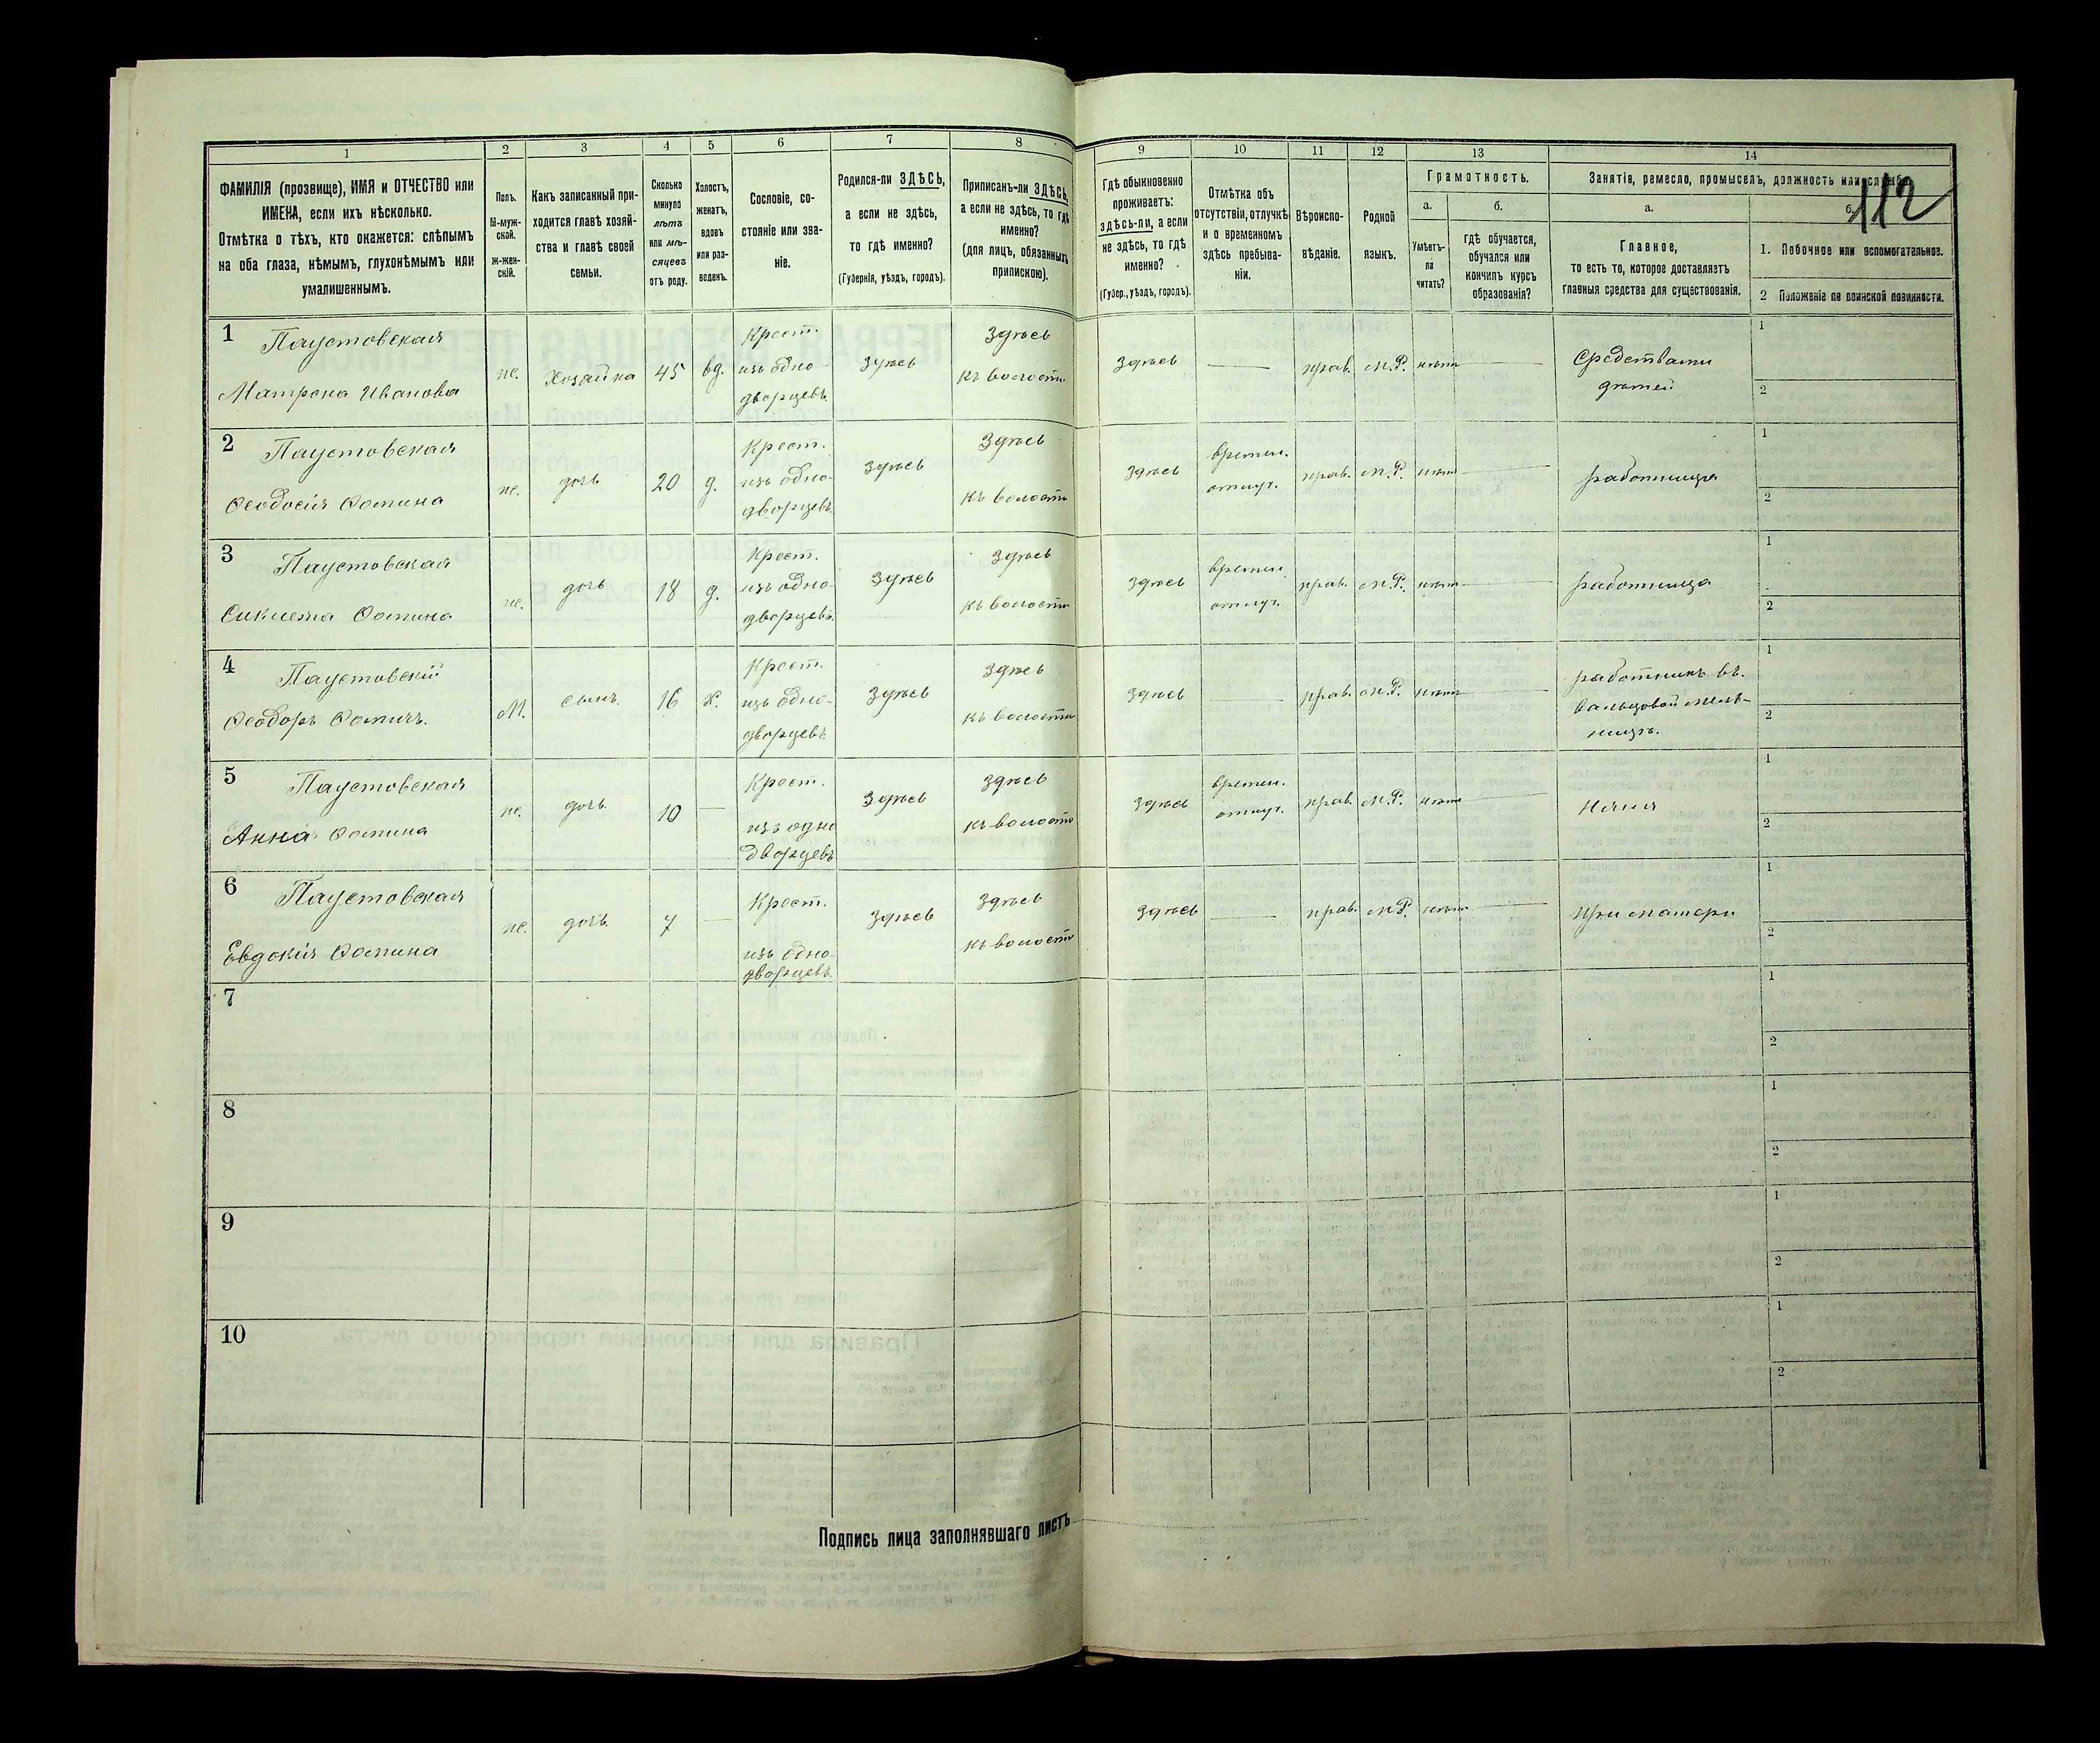 1 2 3 4 5 6 7 8 9 10 11 12 13 14
112
ФАМИЛІЯ (прозвище), ИМЯ и ОТЧЕСТВО или
ИМЕНА, если ихъ нѣсколько.
Отмѣтка о тѣхъ, кто окажется: слѣпымъ
на оба глаза, нѣмымъ, глухонѣмымъ или
умалишеннымъ.
Полъ.
М-муж-
ской.
Ж-жен-
скій.
Какъ записанный при-
ходится главѣ хозяй-
ства и главѣ своей
семьи.
Сколько
минуло
лѣтъ
или мѣ-
сяцевъ
отъ роду.
Холостъ,
женатъ,
вдовъ
или раз-
веденъ.
Сословіе, со-
стояніе или зва-
ніе.
Родился-ли ЗДѢСЬ,
а если не здѣсь,
то гдѣ именно?
(Губернія, уѣздъ, городъ).
Приписанъ-ли ЗДѢСЬ,
а если не здѣсь, то гдѣ
именно?
(для лицъ, обязанныхъ
припискою).
Гдѣ обыкновенно
проживаетъ:
здѣсь-ли, а если
не здѣсь, то гдѣ
именно?
(Губер., уѣздъ, городъ).
Отмѣтка объ
отсутствіи, отлучкѣ
и о временномъ
здѣсь пребыва-
ніи.
Вѣроиспо-
вѣданіе.
Родной
языкъ.
Грамотность.
а.
Умѣетъ-
ли
читать?
б.
Гдѣ обучается,
обучался или
кончилъ курсъ
образованія?
Занятія, ремесло, промыселъ, должность или служба.
а.
Главное,
то есть то, которое доставляетъ
главныя средства для существованія.
б.
1. Побочное или вспомогательное.
2 Положеніе по воинской повинности.
1 Паустовская
Матрона Иванова
же.
Хозяйка
45
вд.
Крест.
изъ одно-
дворцевъ
Здѣсь
Здѣсь
къ волости
Здѣсь
прав.
М.Р.
нѣтъ
Средствами
дѣтей
1
2
2 Паустовская
Ѳеодосія Ѳомина
же.
дочь
20
д.
Крест.
изъ одно-
дворцевъ
Здѣсь
Здѣсь
къ волости
Здѣсь
времен.
отлуч.
прав.
М.Р.
нѣтъ
работница
1
2
3 Паустовская
Ѳомина
же.
дочь
18
д.
Крест.
изъ одно-
дворцевъ
Здѣсь
Здѣсь
къ волости
Здѣсь
времен.
отлуч.
прав.
М.Р.
нѣтъ
работница
1
2
4 Паустовскій
Ѳеодоръ Ѳомичъ.
М.
сынъ.
16
х.
Крест.
изъ одно-
дворцевъ
Здѣсь
Здѣсь
къ волости
Здѣсь
прав.
М.Р.
нѣтъ
работникъ въ
вальцовой мель-
ницѣ.
1
2
5 Паустовская
Анна Ѳомина
же.
дочь
10
Крест.
изъ одно
дворцевъ
Здѣсь
Здѣсь
къ волости
Здѣсь
времен.
отлуч.
прав.
М.Р.
нѣтъ
няня
1
2
6 Паустовская
Евдокія Ѳомина
же.
дочь
7
Крест.
изъ одно-
дворцевъ
Здѣсь
Здѣсь
къ волости
Здѣсь
прав.
М.Р.
нѣтъ
при матери
1
2
7
1
2
8
1
2
9
1
2
10
1
2
Подпись лица заполнявшаго листъ